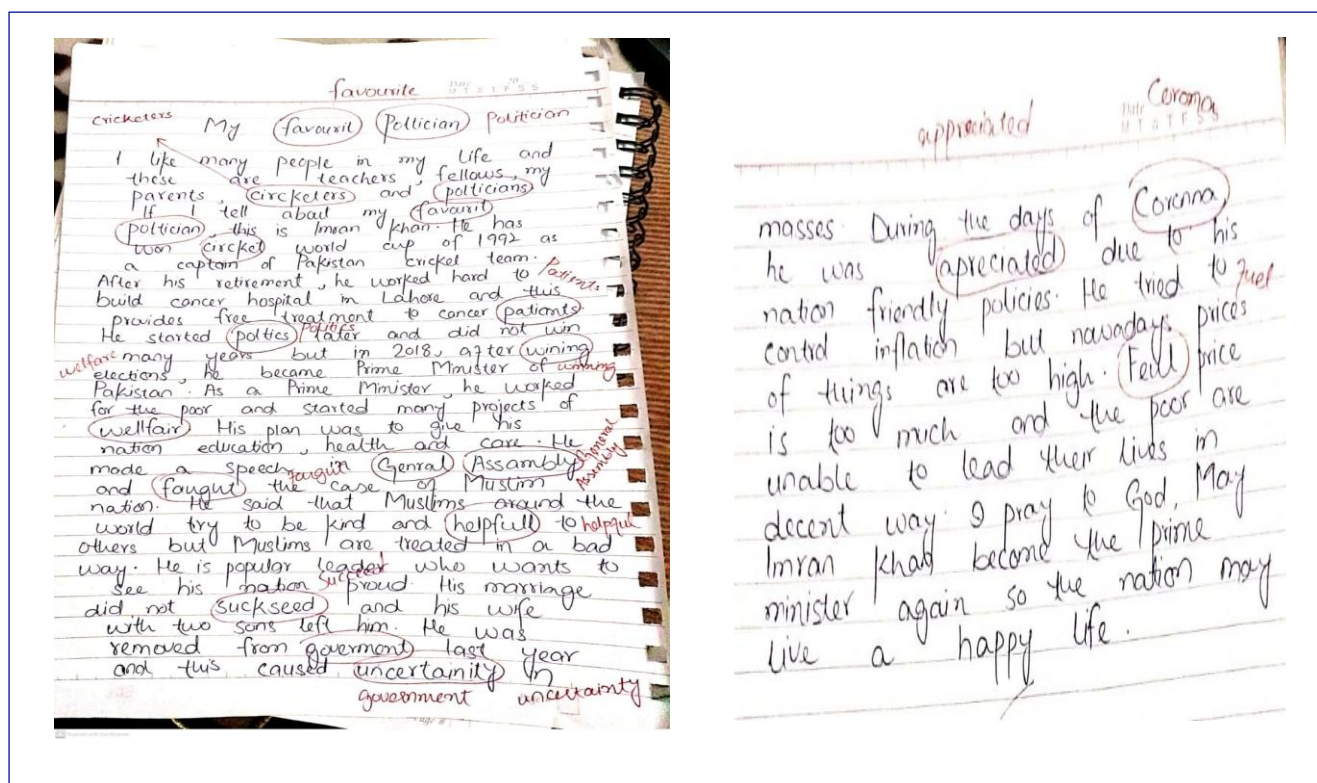 favourite
cricketers My favouril Poltician Politician
I like many people in my life and
these are teachers, fellows, my
parents, circketers and polticians
If I tell aboul my favouril
poltician, this is Imran Khan. He has
won circket world cup of 1992 as
a captain of Pakistan cricket team.
After his retirement, he worked hard to Patients
build cancer hospital in Lahore and this
provides free treatment to cancer patiants
He started poltics politics later and did not win
welfare many years but in 2018, after wining
elections, he became Prime Minister of winning
Pakistan. As a Prime Minister, he worked
for the poor and started many projects of
wellfair. His plan was to give his
nation education, health and care. He
made a speech in Genral Assambly General Assembly
and faugut fought the case of Muslim
nation. He said that Muslims around the
world try to be kind and helpfull to helpful
others but Muslims are treated in a bad
way. He is popular leader who wants to
see his nation proud. His marriage
succeed
did not suckseed and his wife
with two sons left him. He was
removed from goverment last year
and this caused uncertainity in
government uncertainty
appreciated Date Corona
M T W T F S S
masses. During the days of Corenna,
he was apreciated due to his
nation friendly policies. He tried to fuel
control inflation but nawadays prices
of things are too high. Feull price
is too much and the poor are
unable to lead their lives in
decent way. I pray to God, May
Imran Khan become the prime
minister again so the nation may
live a happy life.